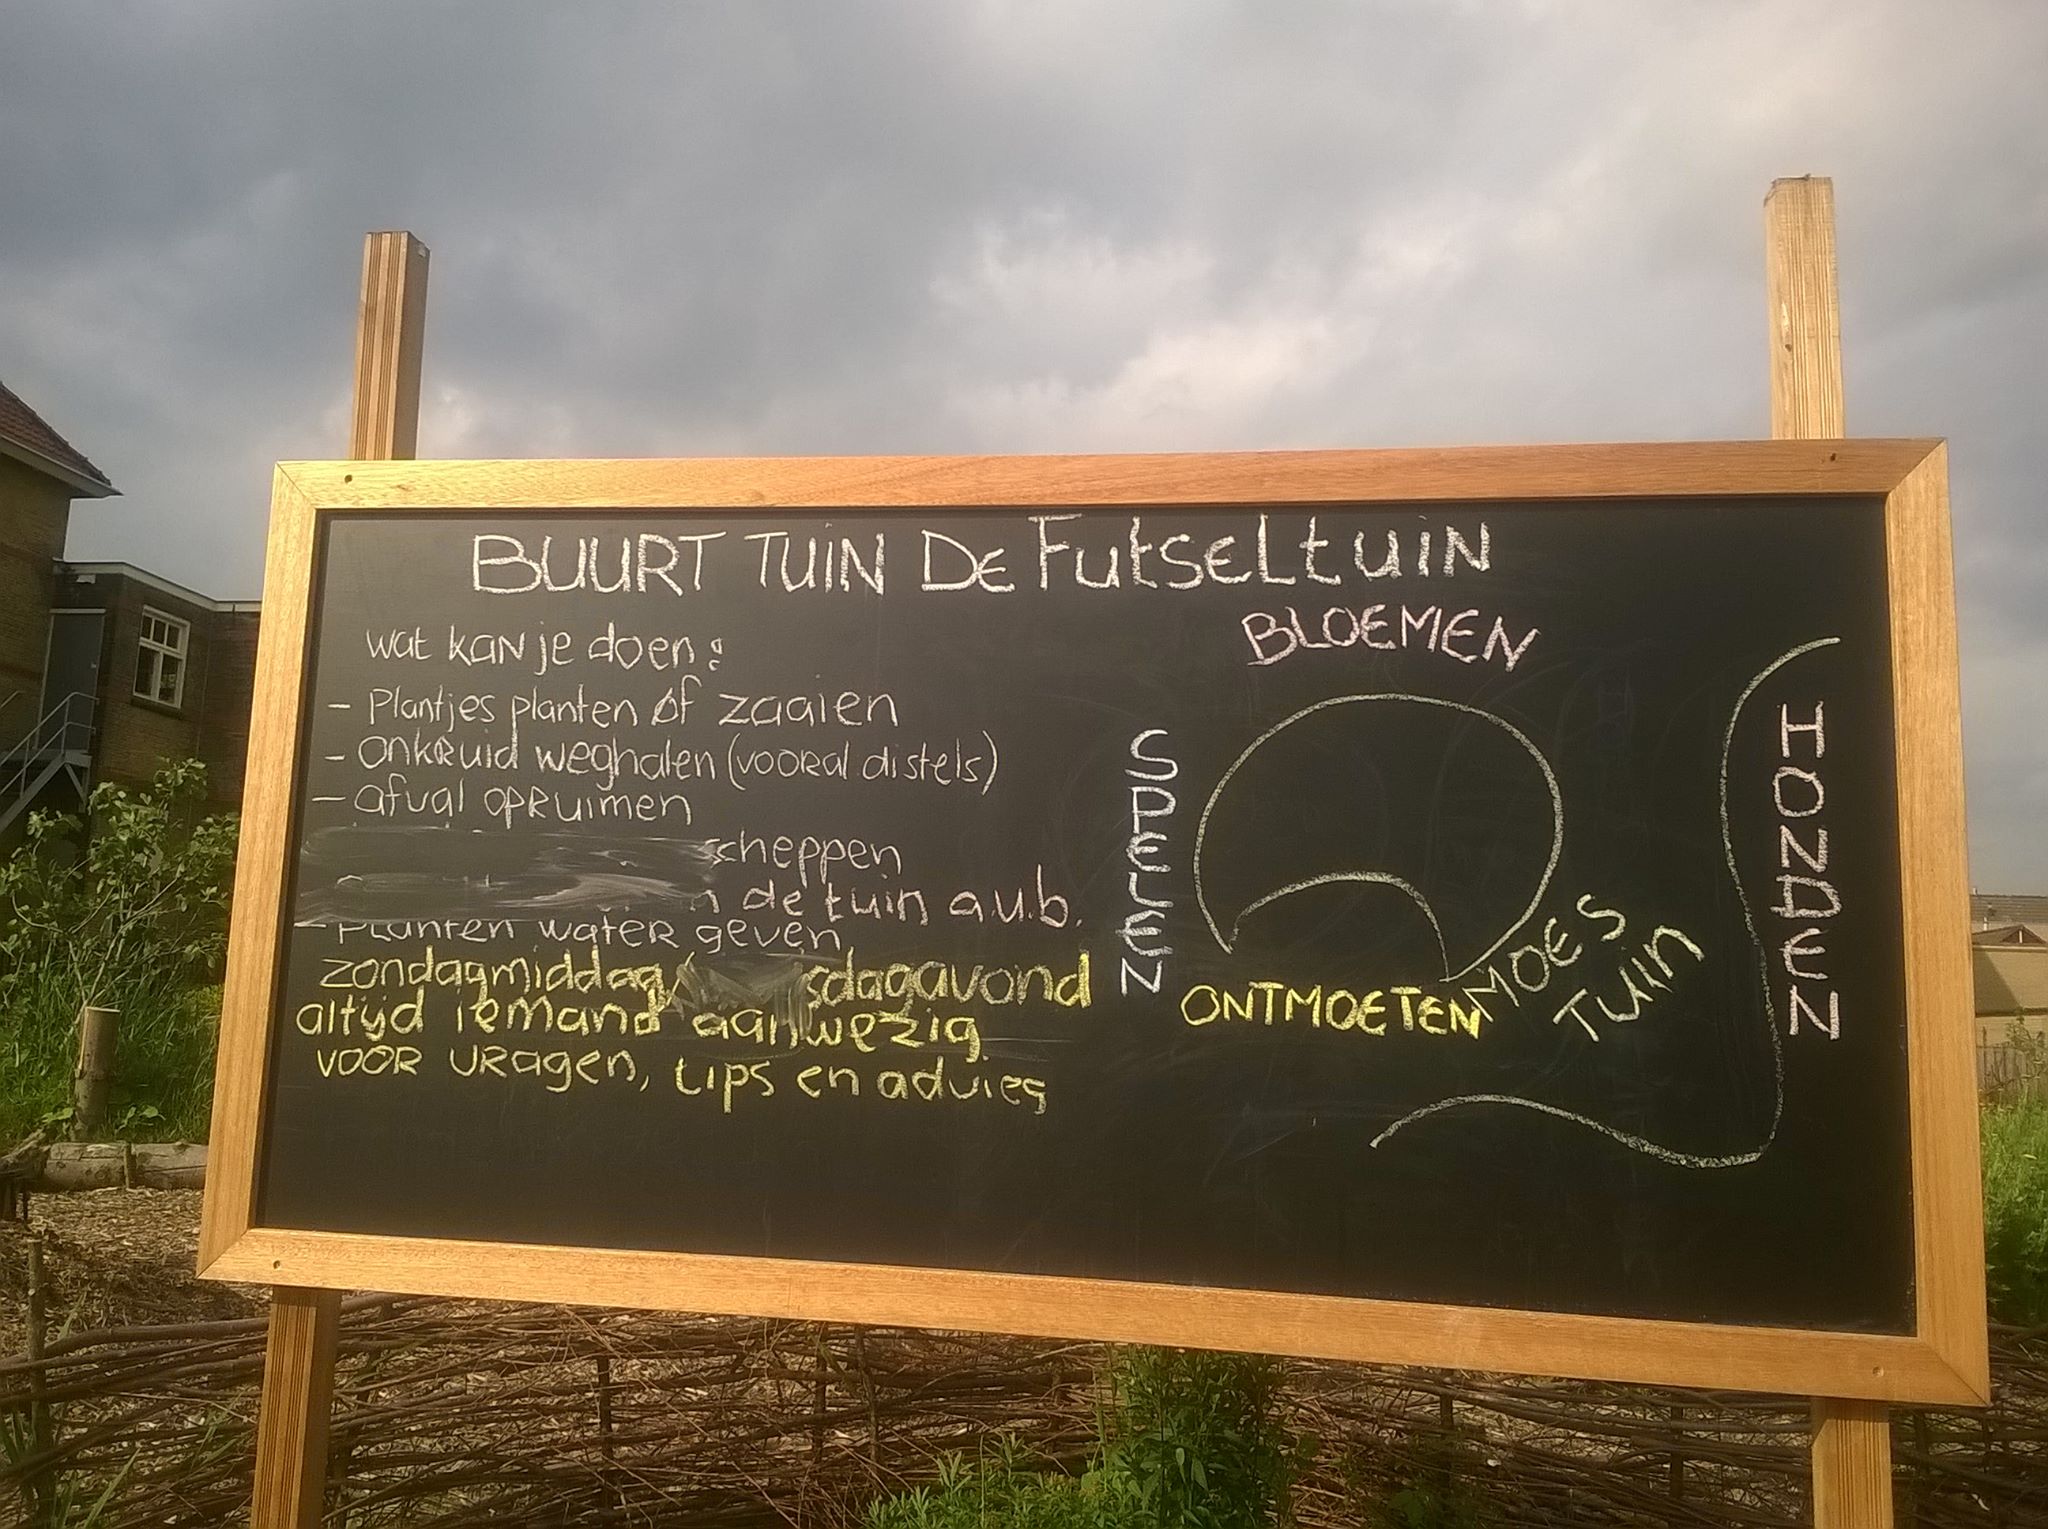 BUURT TUIN DE FUTSELTUIN
wat kan je doen:
- Plantjes planten of zaaien
- onkruid weghalen (vooral distels)
- afval opruimen
scheppen
de tuin a.u.b.
- Planten water geven
zondagmiddag/ sdagavond
altijd iemand aanwezig
voor vragen, tips en advies
BLOEMEN
SPELEN
ONTMOETEN
MOES
TUIN
HONDEN